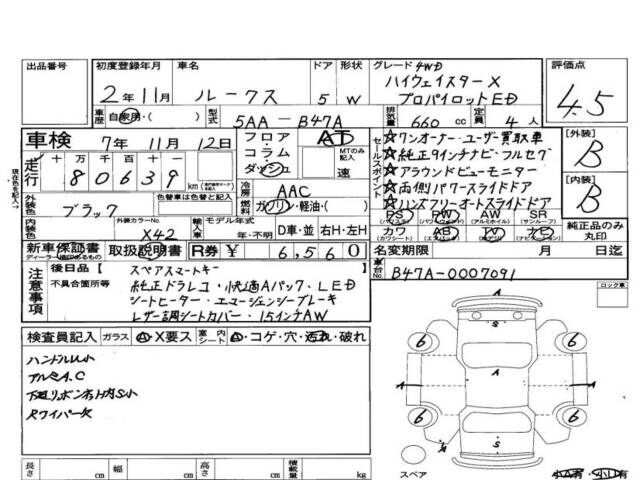 出品番号
初度登録年月 車名 ドア 形状 グレード 4WD 評価点
2年11月 ルークス 5 W ハイウェイスターX
プロパイロットED
4.5
車歴 自家用・( ) 型式 5AA-B47A 排気量 660 cc 定員 4人
車検 7年 11月 12日 フロア AT
コラム MTのみ記入
ダッシュ 速
セールスポイント
☆ワンオーナー・ユーザー買取車
☆純正9インチナビ・フルセグ
☆アラウンドビューモニター
☆両側パワースライドドア
☆ハンズフリーオートスライドドア
[外装]
B
[内装]
B
現在色を記入→
走行 十 万 千 百 十 一
80639 km
冷房 AAC
外装色 ブラック 色替車は色替と記入 燃料 ガソリン・軽油・( )
PS PW AW SR
(パワステ) (パワーウィンドウ) (アルミホイル) (サンルーフ)
内装色 外装カラーNo. X42 輸入車 モデル年式 年・不明 D車・並 右H・左H
カワ AB TV ナビ
(カワシート) (エアバッグ) (テレビ) (ナビゲーション)
純正品のみ丸印
新車保証書 取扱説明書 R券 ¥ 6,560 名変期限 月 日迄
車台No. B47A-0007091
注意事項
後日品 スペアスマートキー
不具合箇所等 純正ドラレコ・快適Aパック・LED
シートヒーター・エマージェンシーブレーキ
レザー調シートカバー・15インチAW
ロック車
検査員記入 ガラス A・X要ス 室内シート A・コゲ・穴・汚れ・破れ
ハンドルW小
アルミA.C
Rワイパー欠
A
S
6 6
A A A
6 6
S
スペア
小A有・小U有
長さ cm 幅 cm 高さ cm 積載量 kg